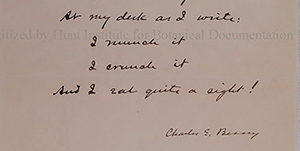 At my desk as I write:
tized by Hunt Institute for Botanical Documentation
I munch it
I crunch it
And I eat quite a sight!
Charles E. Bessey